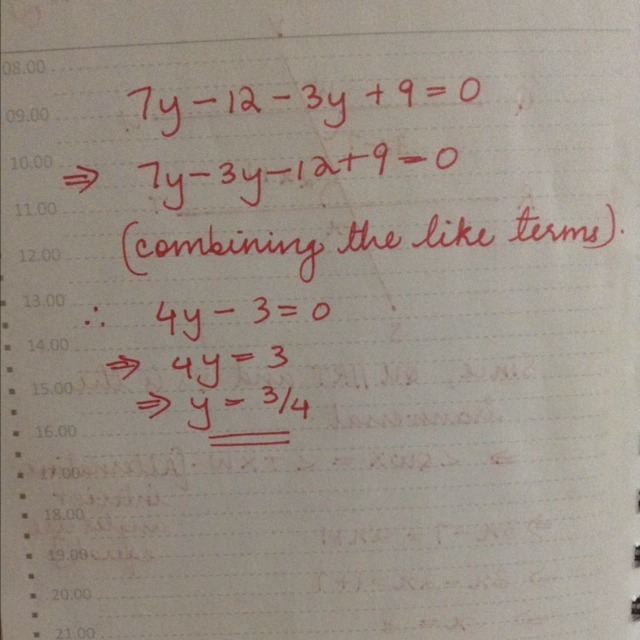 08.00
7y - 12 - 3y + 9 = 0
09.00
10.00
⇒ 7y - 3y - 12 + 9 = 0
11.00
(combining the like terms).
12.00
13.00
∴ 4y - 3 = 0
14.00
⇒ 4y = 3
15.00
⇒ y = 3/4
16.00
17.00
18.00
19.00
20.00
21.00